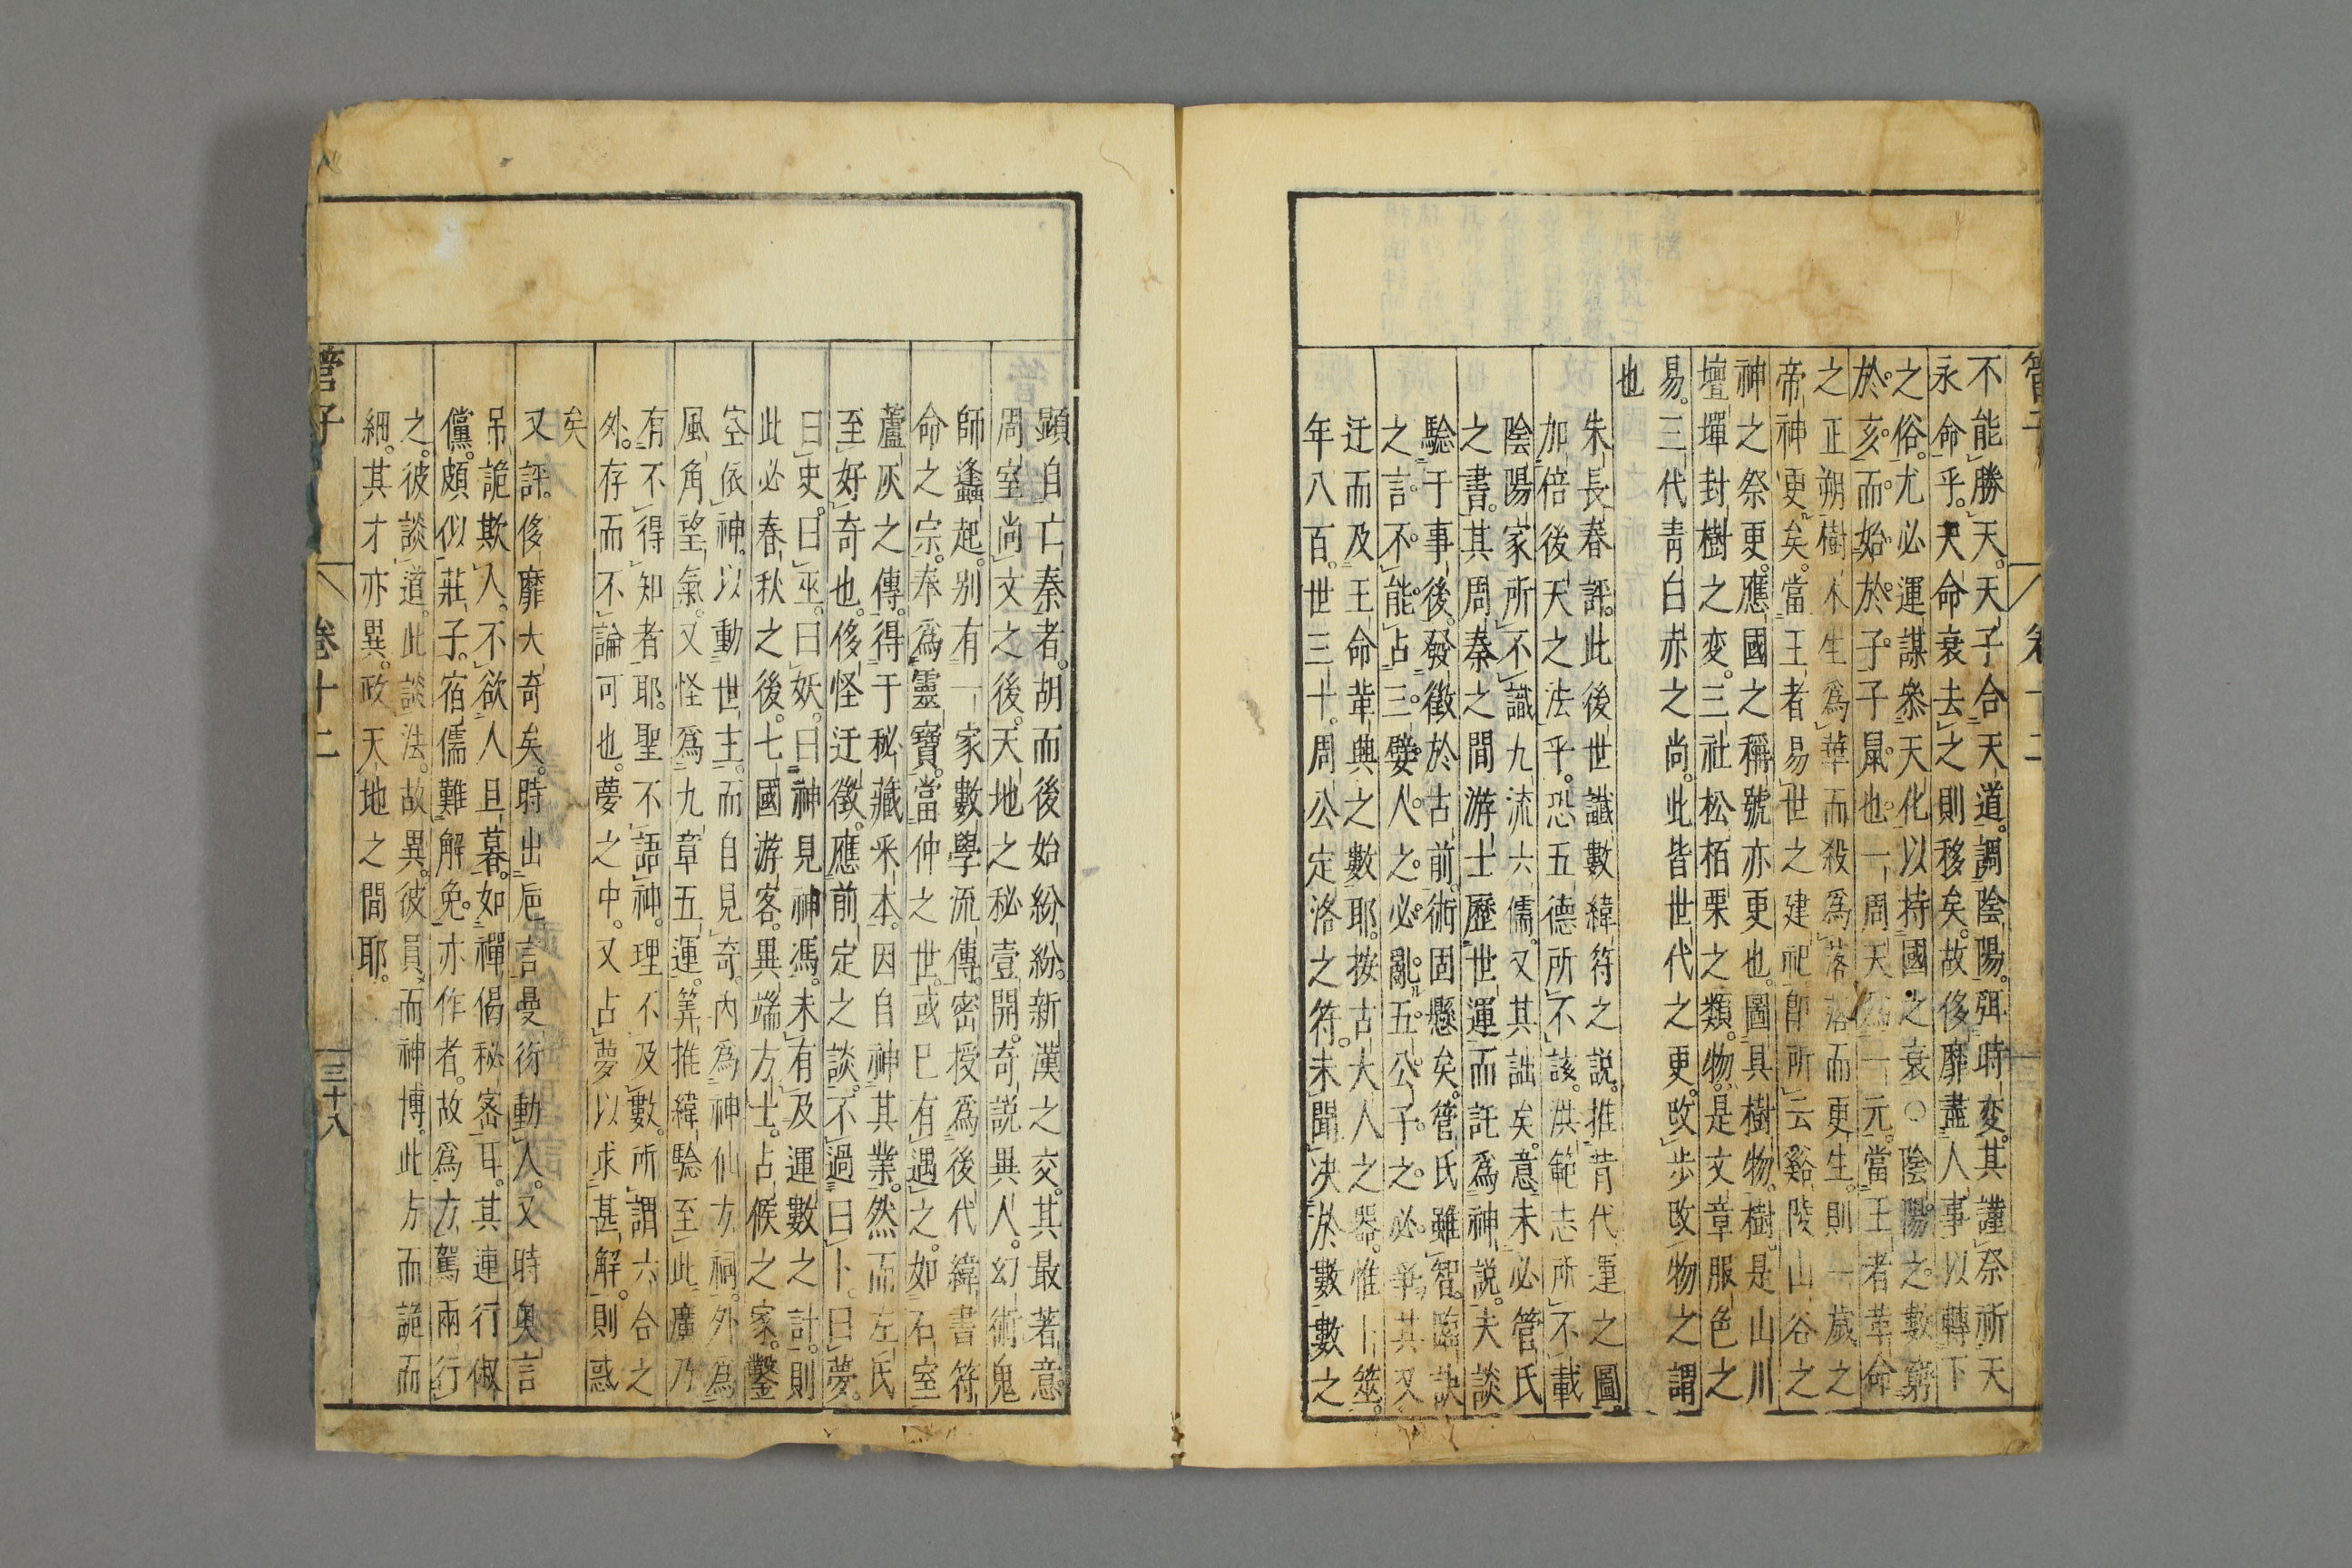 管子 卷十二
不能勝天。天子合天道。調陰陽。弭時変。其謹祭祈天
永命乎。天命衰去之則移矣。故侈靡盡人事以轉下
之俗。尤必運謀叅天化以持國之衰○陰陽之數窮
於亥。而始於子。子鼠也。一周天為一元。當王者革命
之正朔樹木生爲華而殺爲落落而更生。則一歲之
帝神更矣。當王者易世之建祀。卽所云谿陵山谷之
神之祭更。應國之稱號亦更也。圖具樹物。樹是山川
壇墠封樹之変。三社松栢栗之類。物是文章服色之
易。三代青白赤之尚。此皆世代之更。改步改物之謂
也
朱長春評。此後世讖數緯符之説。推昔代運之圖。
加倍後天之法乎。恐五德所不該。洪範志所不載
陰陽家所不識九流六儒。又其詘矣。意未必管氏
之書。其周秦之間游士歷世運而託爲神説。夫談
驗于事後。發徵於古前。術固懸矣。管氏雖智。臨訣
之言。不能占三嬖人之必亂。五公子之必爭其又
迂而及王命革典之數耶。按古大人之器。惟卜筮。
年八百。世三十。周公定洛之符。未聞决於數數之
顕自亡秦者。胡而後始紛紛。新漢之交。其最著意。
周室尚文之後。天地之秘壹開。奇説異人。幻術鬼
師蠭起。别有一家數學流傳。密授爲後代緯書符
命之宗。奉爲靈寶。當仲之世。或已有遇之。如石室
蘆灰之傳。得于秘藏釆本。因自神其業。然而左氏
至好奇也。侈怪迂徵。應前定之談。不過曰卜。曰夢。
曰史。曰巫。曰妖。曰神見神馮。未有及運數之計。則
此必春秋之後。七國游客。異端方士。占候之家。鑿
空依神。以動世主。而自見奇。內爲神仙方祠。外爲
風角望氣。又怪爲九章五運。筭推緯驗至此廣乃
有不得知者耶。聖不語神。理不及數。所謂六合之
外。存而不論可也。夢之中。又占夢以求甚解。則惑
矣
又評。侈靡大奇矣。時出巵言曼衍動人。又時奥言
吊詭欺人。不欲人旦暮。如禪偈秘宻耳。其連行俶
儻。頗似莊子。宿儒難解免。亦作者。故爲方駕兩行
之。彼談道。此談法。故異。彼員。而神博。此方而詭而
細。其才亦異。政天地之間耶。
管子 卷十二 三十八